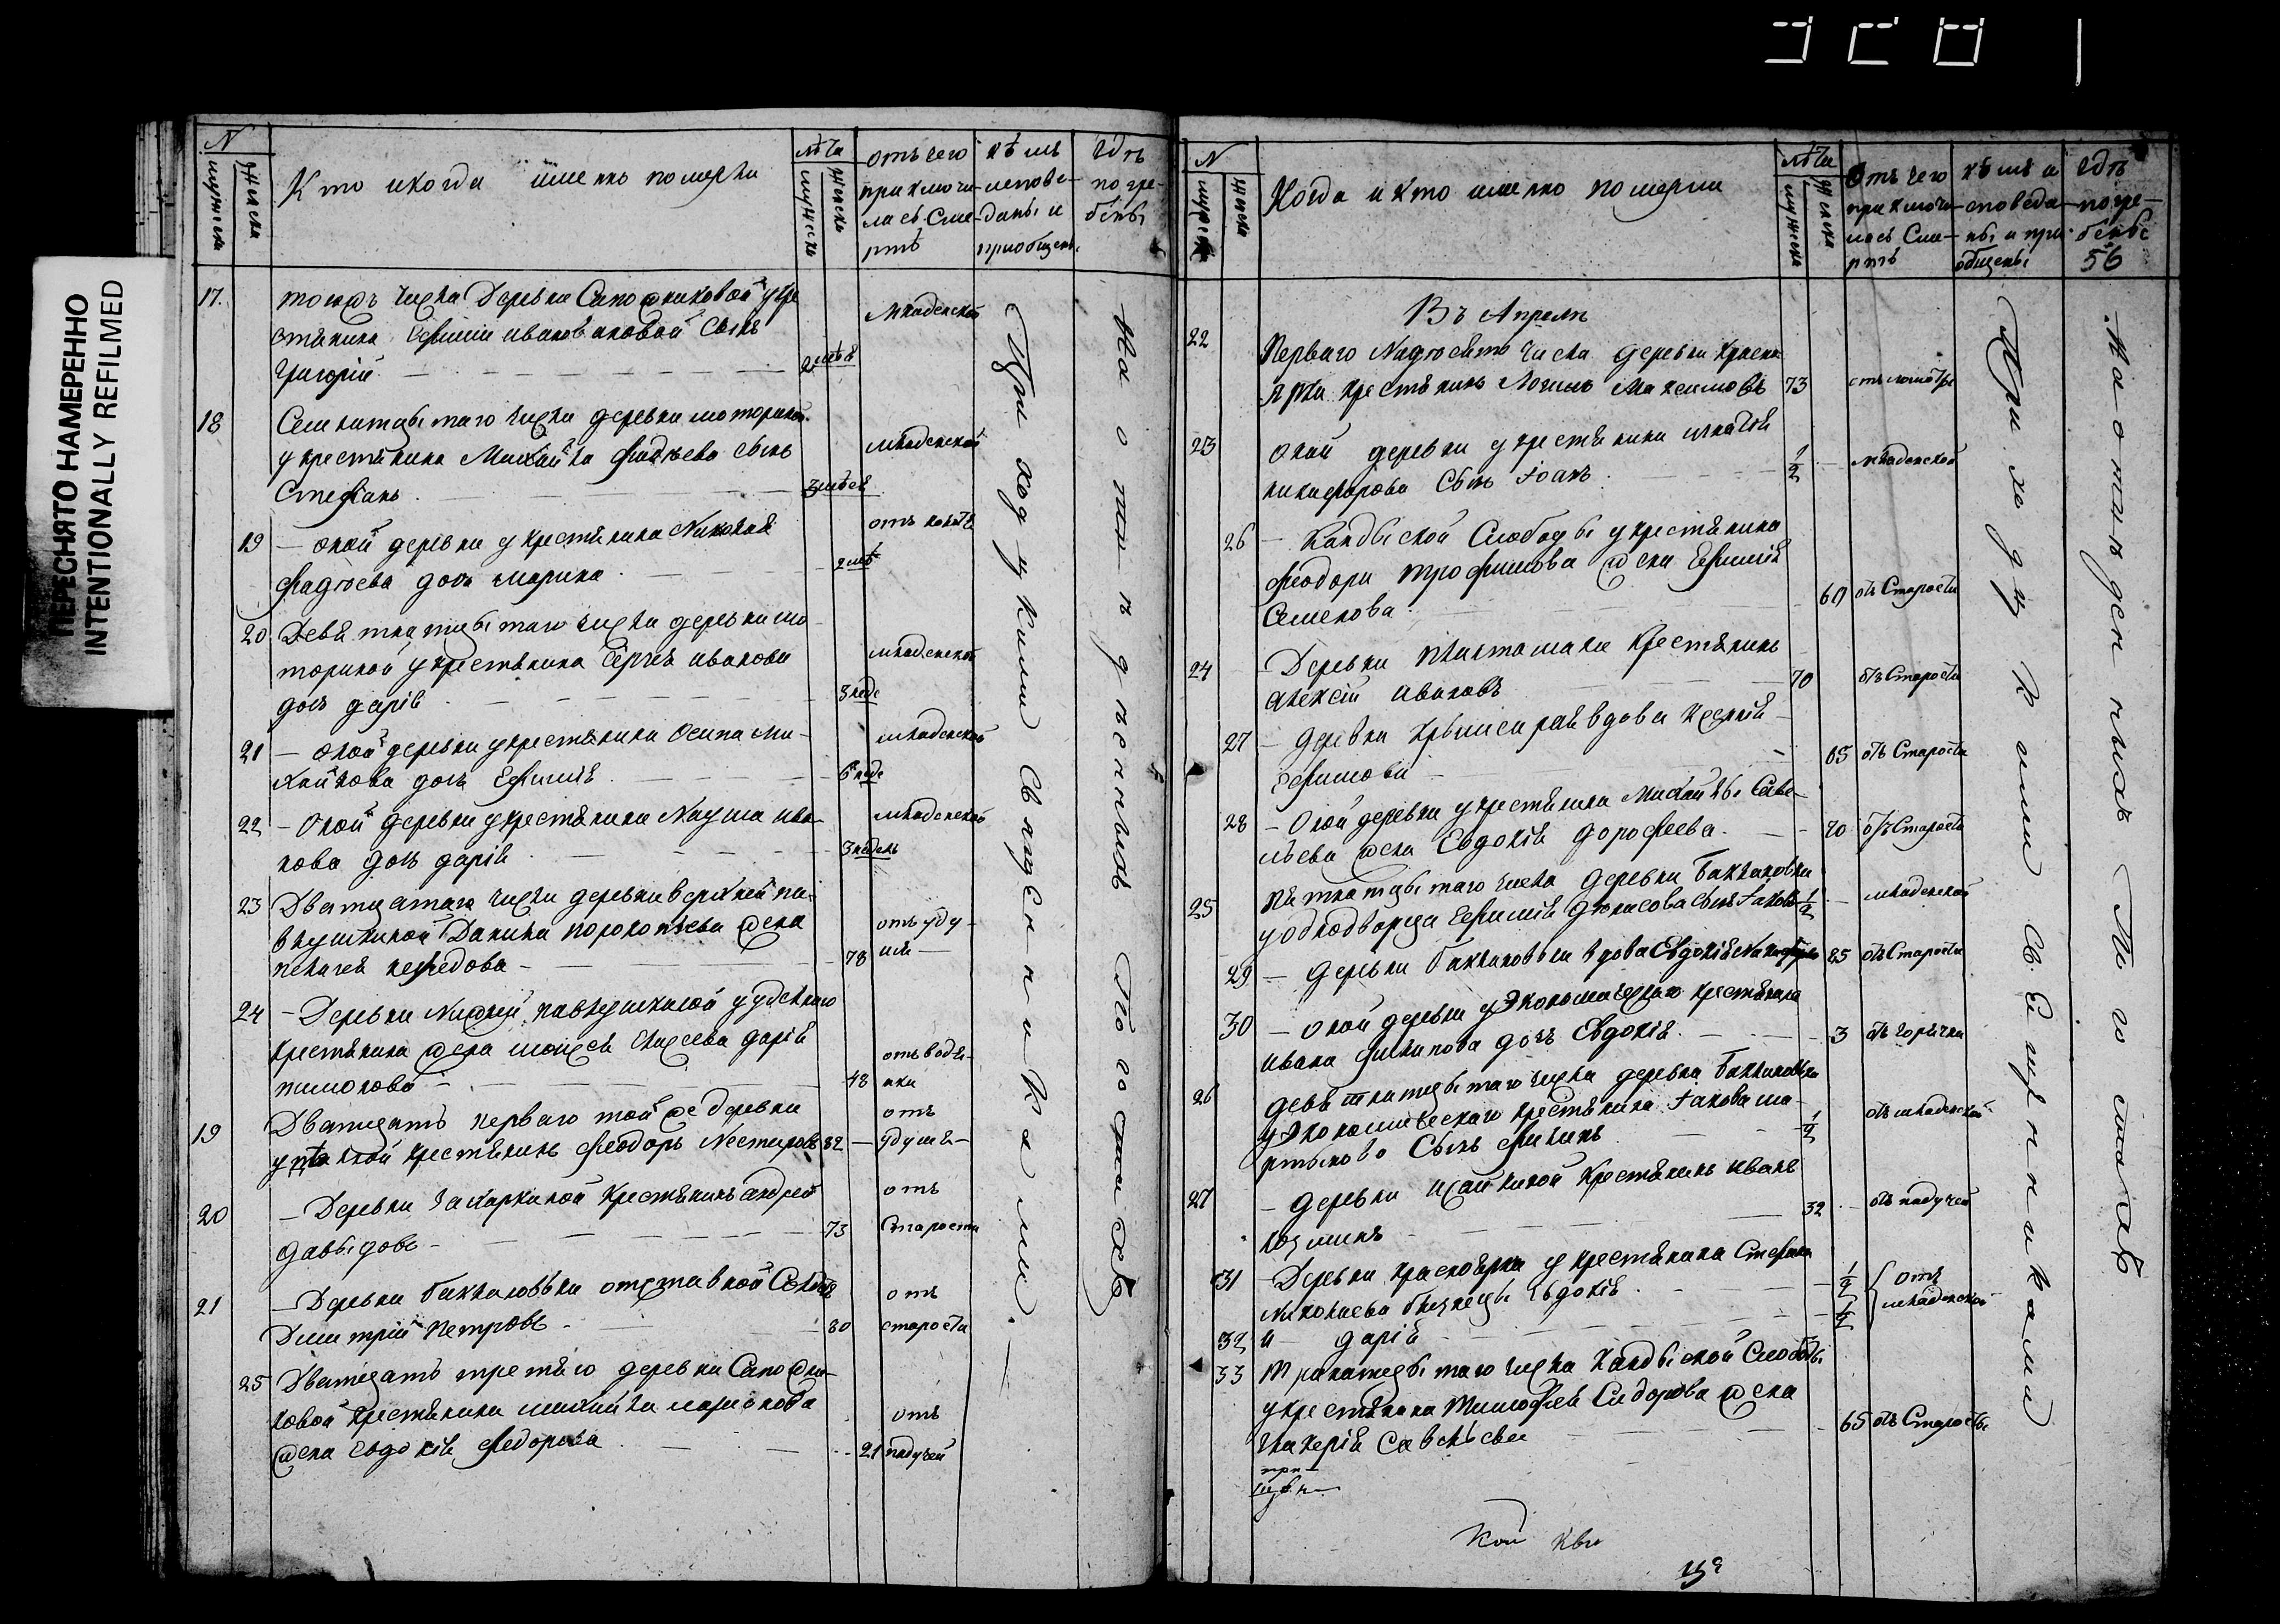 ПЕРЕСНЯТО НАМЕРЕННО
INTENTIONALLY REFILMED
N
мужеска
женска
Кто и когда именно померли
лѣта
мужеска
женска
отъ чего приключилась смерть
кѣмъ исповеданы и приобщены
гдѣ погребены
17.
тогожъ числа Деревни Сапожниковой у кре
стьянина Ефима Иванова сынъ
Григорій
2 мѣся
младенской
18
Семнатцатаго числа деревни моторкиной
у крестьянина Михайла Фадѣева сынъ
Стефанъ
3 мѣсев
младенской
19 — оной деревни у крестьянина Николая
Фадѣева дочь Марина
2 лѣт
20 Девятнатцатаго числа деревни мо
торкиной у крестьянина Сергея иванова
дочь дарія
3 неде
младенской
21 — оной деревни у крестьянина Осипа Ми-
хайлова дочь Ефимія
6 неде
младенской
22 — Оной деревни у крестьянина Наума ива-
нова дочь дарія
3 недель
младенской
23 Дватцатаго числа деревни верхней па-
влушкиной Данила Прокопьева жена
Пелагея нефедова
78
отъ уду-
шя
24 — Деревни Нижней павлушкиной у удельнаго
крестьянина жена мосея елисеева дарія
тимонова
48
отъ водя-
нки
19
Дватцать перваго той же деревни
крестьянинъ Феодоръ Нестеровъ 82
отъ
удушя
20
— Деревни Захаркиной крестьянинъ андрей
давыдовъ
73
отъ
старости
21
— Деревни Баклановки отставной Солдатъ
Димитрій Петровъ
80
отъ
старости
25 Дватцать третьяго деревни Сапожни-
ковой крестьянина михайла ларионова
жена евдокія федорова
21
отъ
падучей
Приходскими Священниками.
На отведенномъ По госта хъ
N
мужеска
женска
Когда и кто именно померли
лѣта
мужеска
женска
Отъ чего приключилось смерть
кѣмъ исповеданы и приобщены
гдѣ погребены
56
Въ Апрелѣ
22
Перваго Надесять числа деревни Красна
Ярка крестьянинъ Логинъ Максимовъ 73
23
оной деревни у крестьянина игнатія
никифорова Сынъ Іоанъ
1/2
младенской
26 — Кандыской Слободы у крестьянина
Феодора трофимова жена Ефимія
Семенова
60
отъ Старости
24
— Деревни крестьянинъ
алексей ивановъ
70
отъ Старости
27 — деревни вдова ксенія
ефимова
65
отъ Старости
28 — Оной деревни у крестьянина Михайлы Саве-
льева жена Евдокія дорофеева
70
отъ Старости
25
пятнатцатаго числа деревни Баклановки
у однодворца Ефимія денисова сынъ Іаковъ 1/2
младенской
29 — деревни баклановки вдова Евдокія
85
отъ Старости
30 — оной деревни у экономическаго крестьянина
ивана филипова дочь Евдокія
3
отъ горячки
26
девятнатцатаго числа деревни баклановки
у экономическаго крестьянина Іакова ма-
ртынова Сынъ филипъ
1/2
отъ младенской
27
— деревни исайкиной крестьянинъ иванъ
козминъ
32
отъ падучей
31 — Деревни краснаярка у крестьянина Стефана
николаева близнецы евдокія
1/2
отъ
младенской
32 и дарія
1/2
33 числа Кандыской Слободы
у крестьянина Тимофея Сидорова жена
гликерія Савельева
65
отъ Старости
Приходскими Священниками
На отведенныхъ По гостахъ